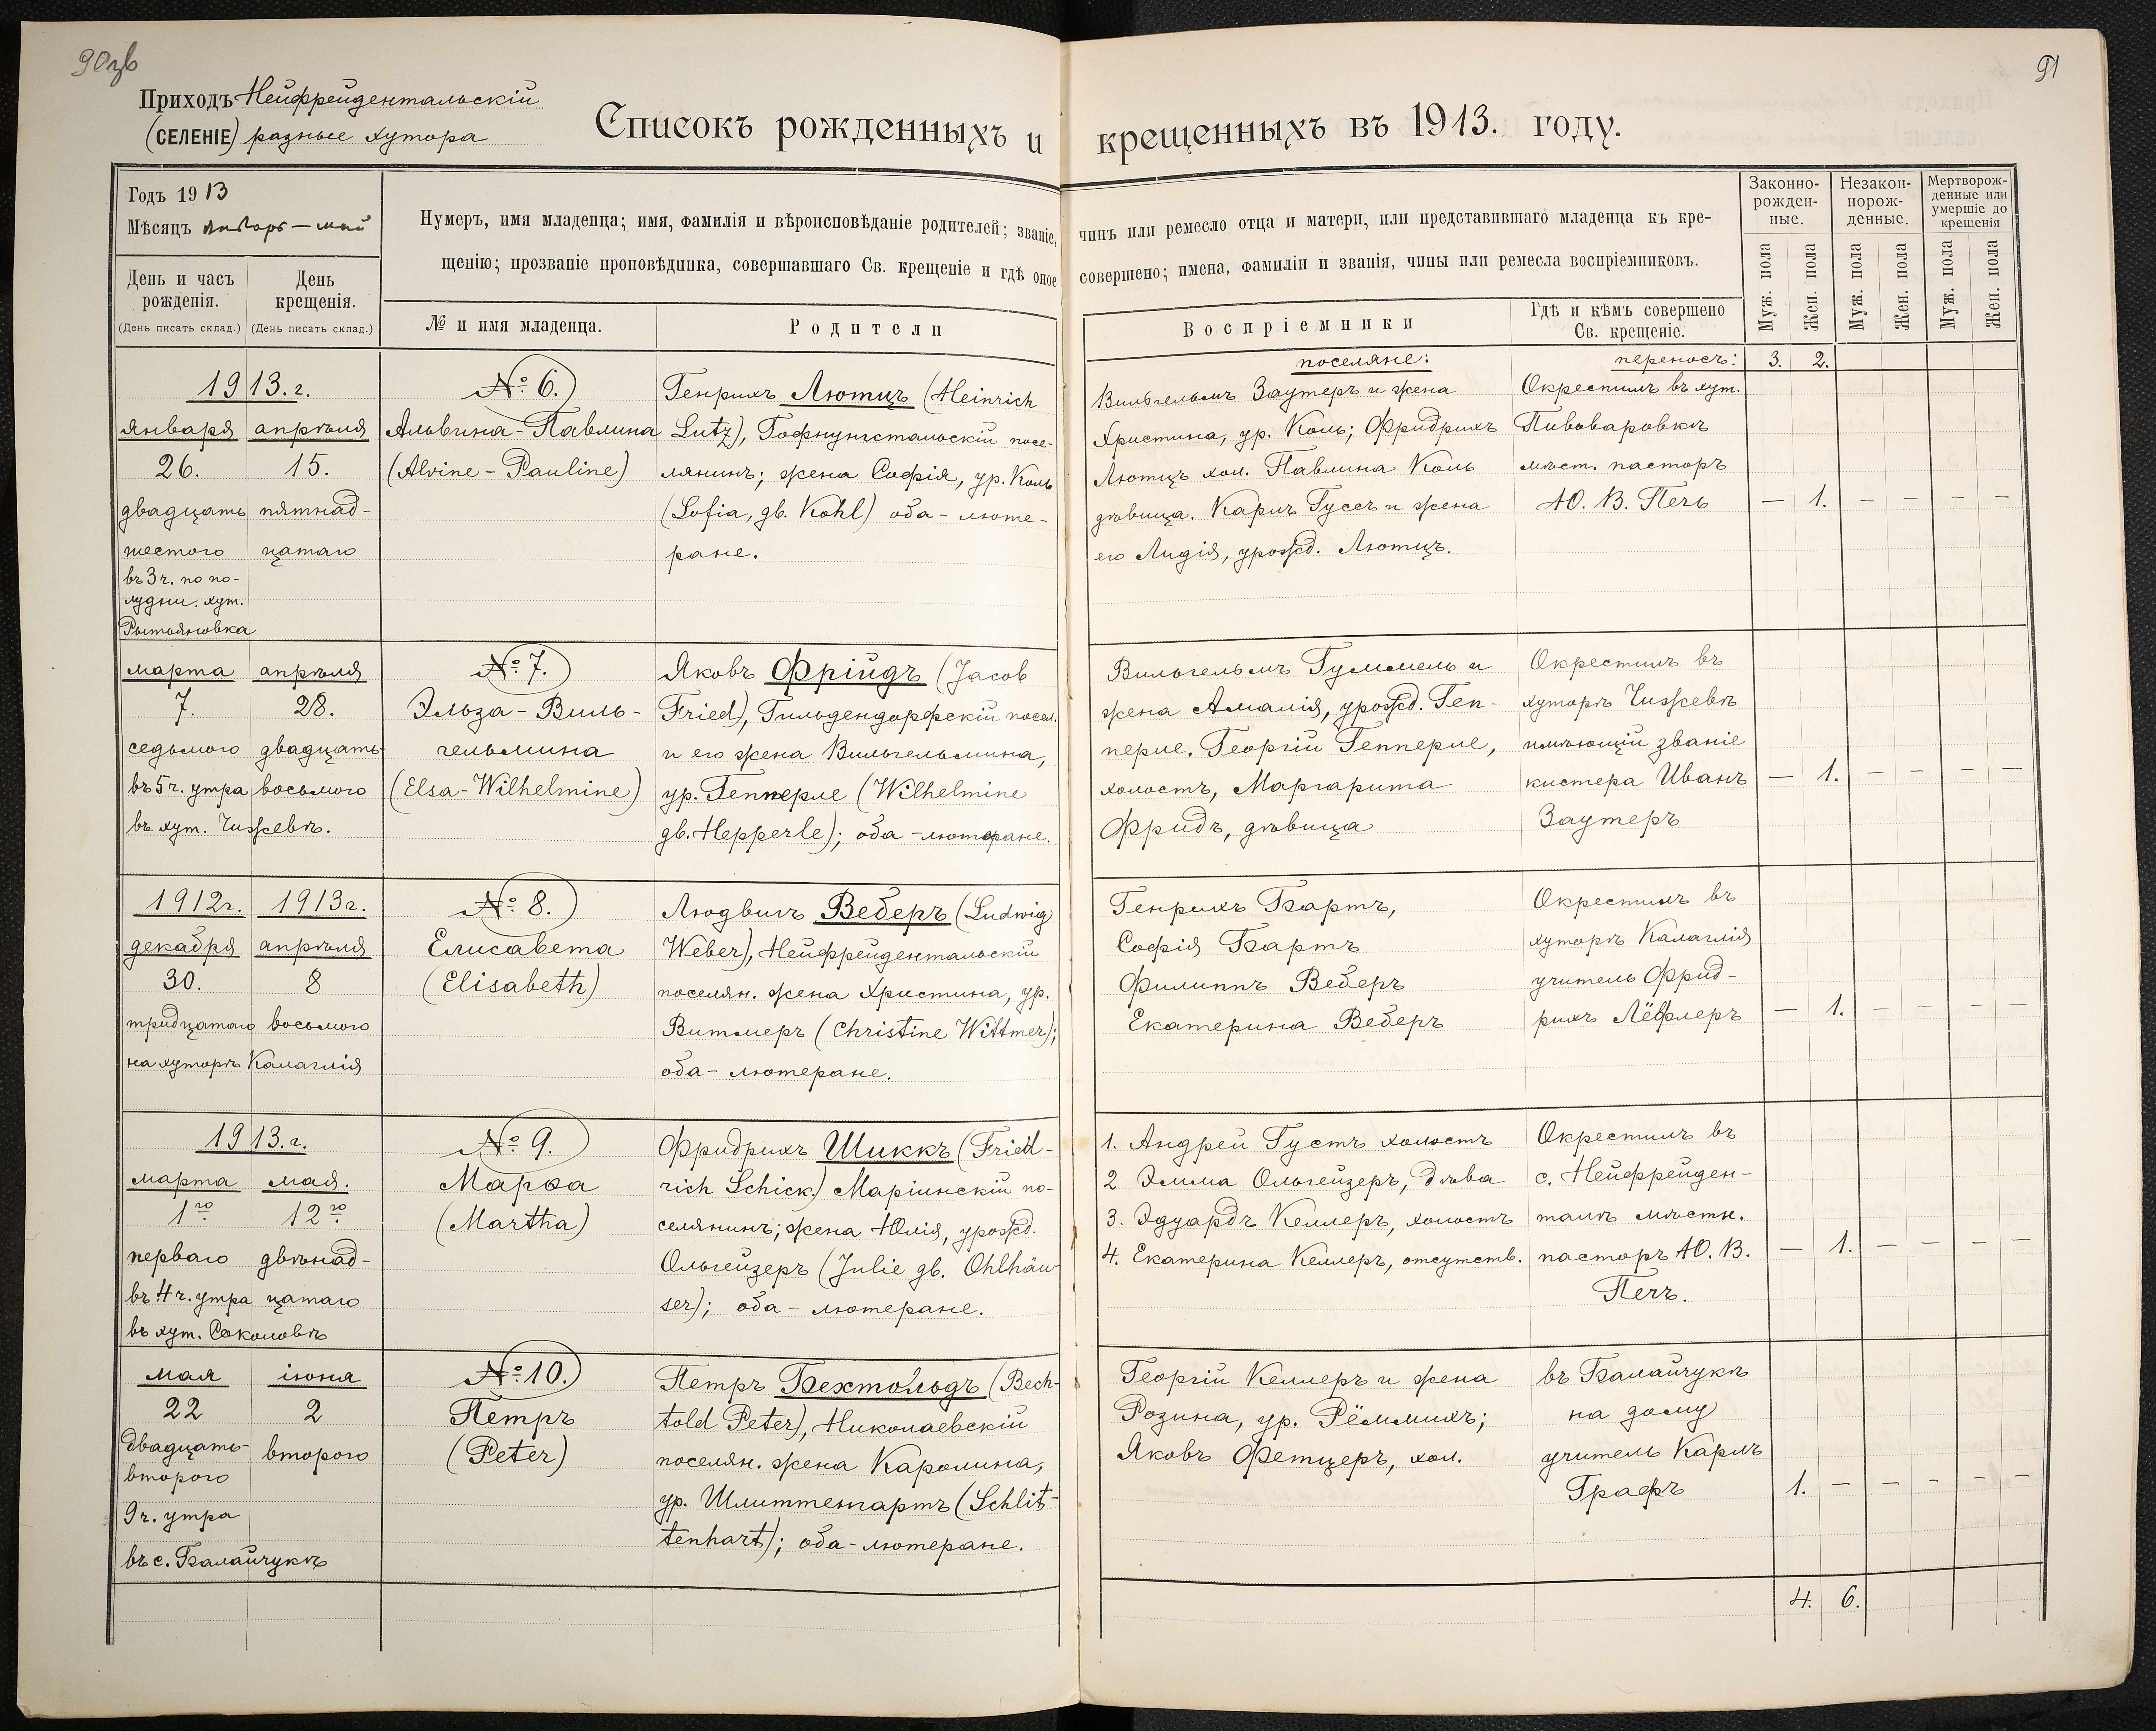 90об
91
Приходъ Нейфрейдентальскій
(СЕЛЕНІЕ) разные хутора
Списокъ рожденныхъ и крещенныхъ въ 1913. году.
Годъ 1913
Мѣсяцъ январь — май
День и часъ рожденія.
(День писать склад.)
День крещенія.
(День писать склад.)
Нумеръ, имя младенца; имя, фамилія и вѣроисповѣданіе родителей; званіе, чинъ или ремесло отца и матери, или представившаго младенца къ кре-
щенію; прозваніе проповѣдника, совершавшаго Св. крещеніе и гдѣ оное совершено; имена, фамиліи и званія, чины или ремесла воспріемниковъ.
№ и имя младенца.
Родители
Воспріемники
Гдѣ и кѣмъ совершено
Св. крещеніе.
Законно-
рожден-
ные.
Незакон-
норож-
денные.
Мертворож-
денные или
умершіе до
крещенія
Муж. пола
Жен. пола
Муж. пола
Жен. пола
Муж. пола
Жен. пола
поселяне:
переносъ:
3. 2.
1913.г.
января
26.
двадцать
шестого
въ 3 ч. по по-
лудни. хут.
апрѣля
15.
пятнад-
цатаго
№ 6.
Альвина-Павлина
(Alvine-Pauline)
Генрихъ Лютцъ (Heinrich
Lutz), Гофнунгстальскій посе-
лянинъ; жена Софія, ур. Коль
(Sofia, gb. Kohl) оба-люте-
ране.
Вильгельмъ Заутеръ и жена
Христина, ур. Коль; Фридрихъ
Лютцъ хол. Павлина Коль
дѣвица. Карлъ Гуссъ и жена
его Лидія, урожд. Лютцъ.
Окрестилъ въ хут.
Пивоваровкѣ
мѣст. пасторъ
Ю. В. Печъ
— 1. — — — —
марта
7.
седьмого
въ 5 ч. утра
въ хут. Чижевѣ.
апрѣля
28.
двадцать-
восьмого
№ 7.
Эльза-Виль-
гельмина
(Elsa-Wilhelmine)
Яковъ Фрійдъ (Jacob
Fried), Гильдендорфскій посел.
и его жена Вильгельмина,
ур. Гепперле (Wilhelmine
gb. Hepperle); оба-лютеране.
Вильгельмъ Гуммель и
жена Амалія, урожд. Геп-
перле. Георгій Гепперле,
холостъ, Маргарита
Фридъ, дѣвица
Окрестилъ въ
хуторѣ Чижевѣ
имѣющій званіе
кистера Иванъ
Заутеръ
— 1. — — — —
1912г.
декабря
30.
тридцатаго
на хуторѣ Калаглія
1913г.
апрѣля
8
восьмого
№ 8.
Елисавета
(Elisabeth)
Людвигъ Веберъ (Ludwig
Weber), Нейфрейдентальскій
поселян. жена Христина, ур.
Витмеръ (Christine Wittmer);
оба-лютеране.
Генрихъ Бартъ,
Софія Бартъ
Филиппъ Веберъ
Екатерина Веберъ
Окрестилъ въ
хуторѣ Калаглія
учитель Фрид-
рихъ Лёфлеръ
— 1. — — — —
1913.г.
марта
1го
перваго
въ 4 ч. утра
въ хут. Соколовѣ
мая.
12го
двѣнад-
цатаго
№ 9.
Марѳа
(Martha)
Фридрихъ Шиккъ (Fried-
rich Schick) Маріинскій по-
селянинъ; жена Юлія, урожд.
Ольгейзеръ (Julie gb. Ohlhäu-
ser); оба-лютеране.
1. Андрей Густъ холостъ
2 Эмма Ольгейзеръ, дѣва
3. Эдуардъ Келлеръ, холостъ
4. Екатерина Келлеръ, отсутств.
Окрестилъ въ
с. Нейфрейден-
талѣ мѣстн.
пасторъ Ю. В.
Печъ.
— 1. — — — —
мая
22
двадцать-
второго
9 ч. утра
въ с. Балайчукѣ
іюня
2
второго
№ 10.
Петръ
(Peter)
Петръ Бехтольдъ (Bech-
told Peter), Николаевскій
поселян. жена Каролина,
ур. Шлиттенгартъ (Schlit-
tenhart); оба-лютеране.
Георгій Келлеръ и жена
Розина, ур. Рёммихъ;
Яковъ Фетцеръ, хол.
въ Балайчукѣ
на дому
учитель Карлъ
Графъ
1. — — — — —
4. 6.